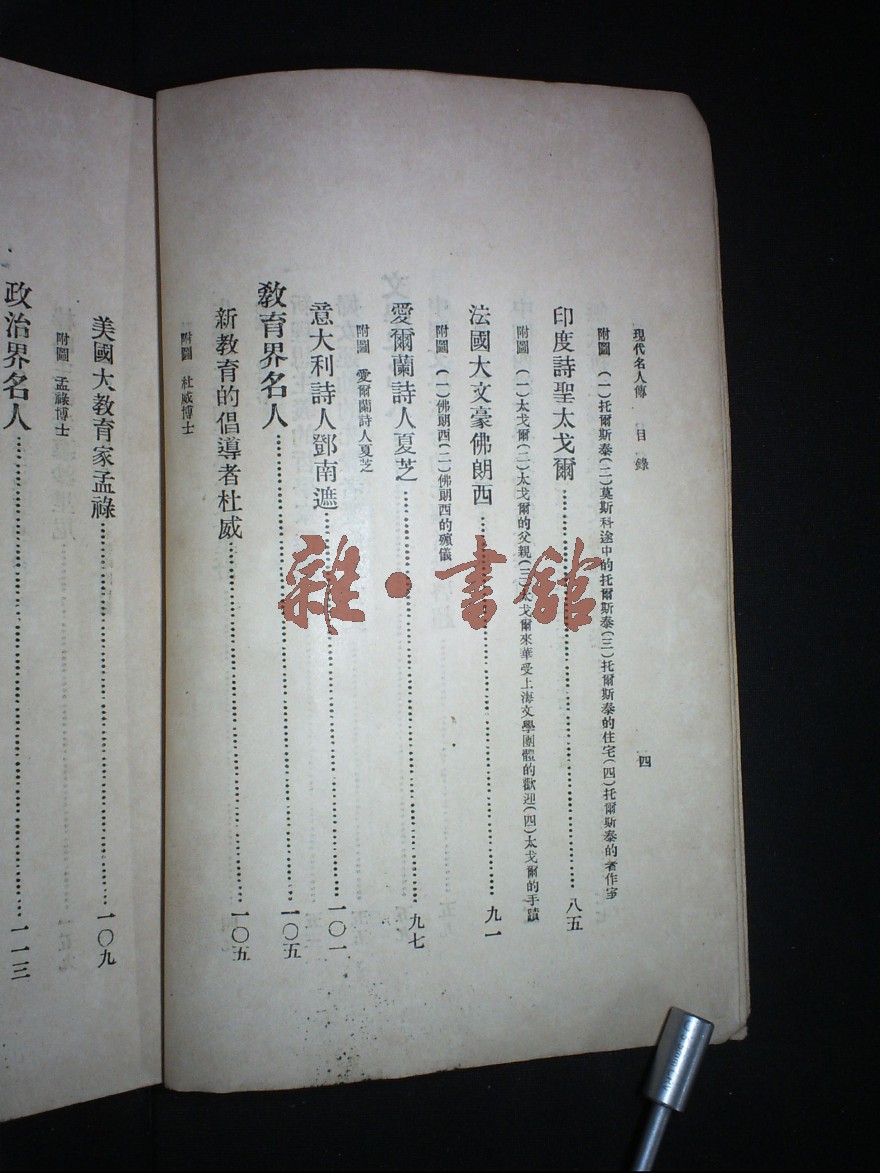 現代名人傳 目錄 四
附圖 (一)托爾斯泰(二)莫斯科途中的托爾斯泰(三)托爾斯泰的住宅(四)托爾斯泰的著作室
印度詩聖太戈爾……八五
附圖 (一)太戈爾(二)太戈爾的父親(三)太戈爾來華受上海文學團體的歡迎(四)太戈爾的手蹟
法國大文豪佛朗西……九一
附圖 (一)佛朗西(二)佛朗西的殯儀
愛爾蘭詩人夏芝……九七
附圖 愛爾蘭詩人夏芝
意大利詩人鄧南遮……一〇一
教育界名人……一〇五
新教育的倡導者杜威……一〇五
附圖 杜威博士
美國大教育家孟祿……一〇九
附圖 孟祿博士
政治界名人……一一三
雜·書館